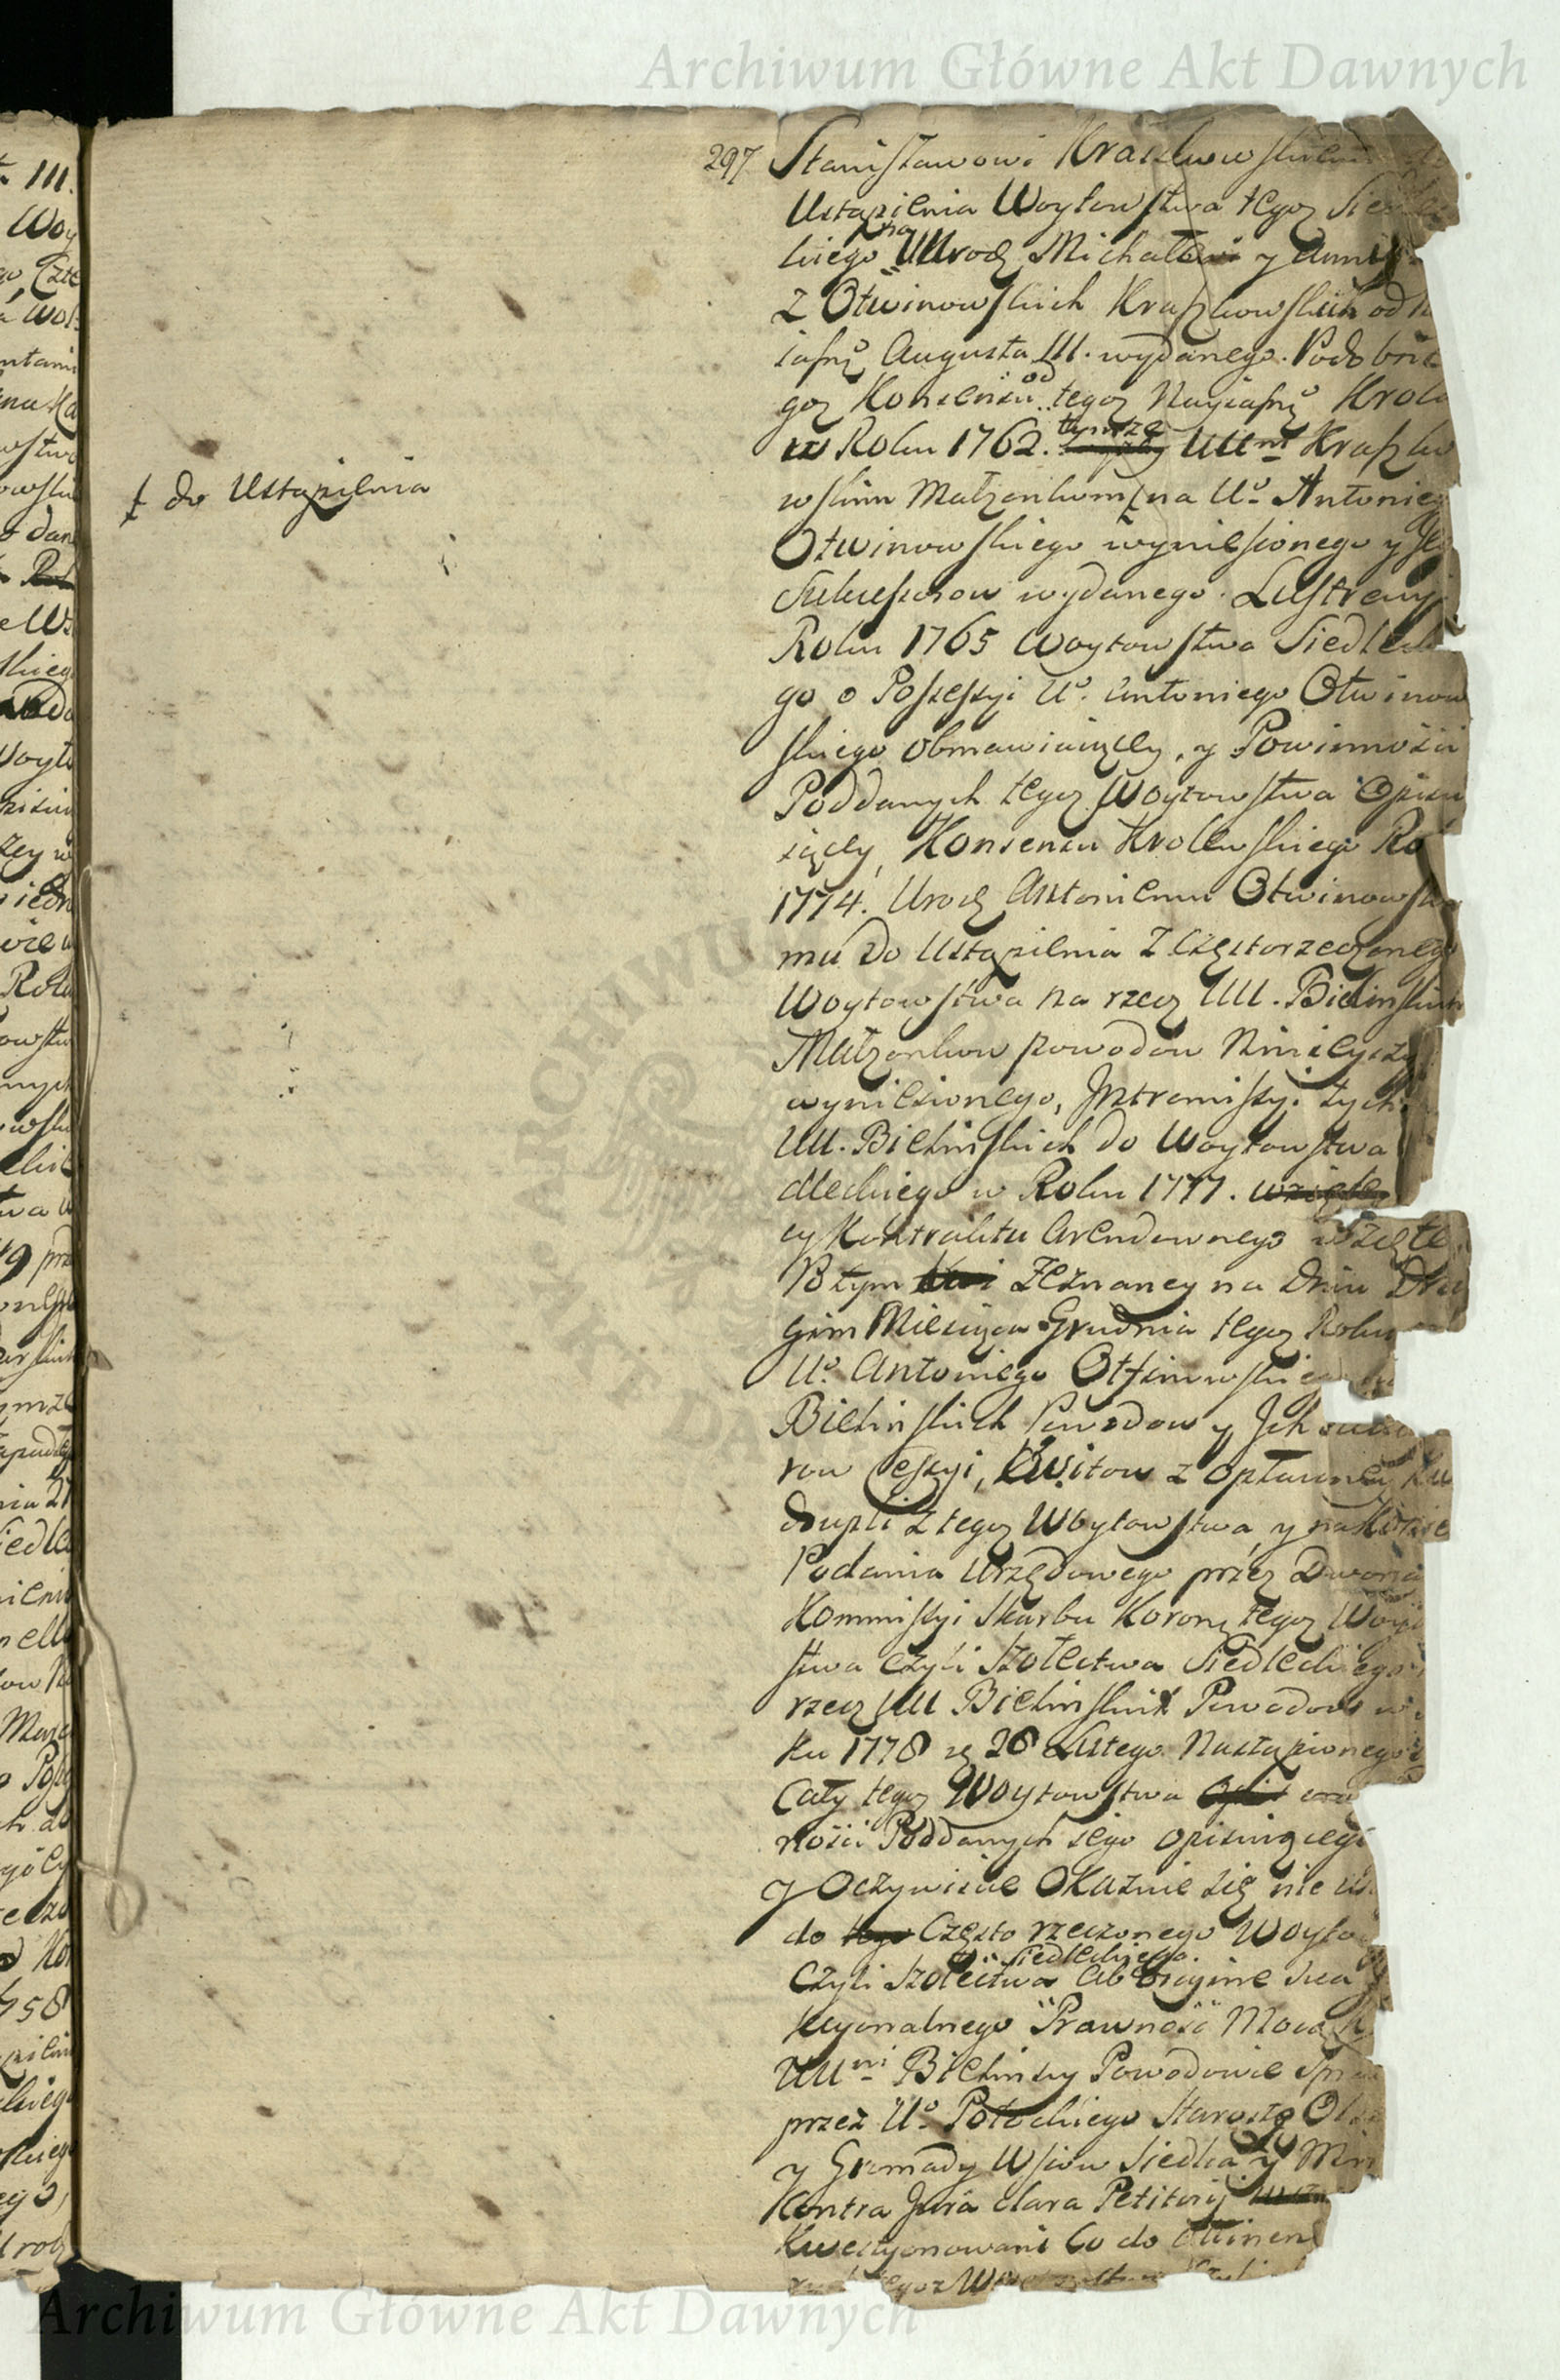 Archiwum Główne Akt Dawnych
297 Stanisławowi Kraszkowskiemu do
Ustąpienia Woytowstwa tegoż Siedlec
kiego na UUrodz Michałowi y Anni
z Otwinowskich Kraszkowskich od N
iaśn͠o Augusta III. wydanego. Podobnie
goż Konsensu od tegoż Nayiaśn͠o Krola
w Roku 1762. tymże UUnt Kraszko
ƚ do Ustąpienia
wskim Małżonkom ƚ na Uo Antonieg
Otwinowskiego wyniesionego y Je
Sukcessorow wydanego. Lustracyi
Roku 1765 Woytowstwa Siedleck
go o Possessyi Uo. Antoniego Otwinow
skiego obmawiaiący, y Powinności
Poddanych tegoż Woytowstwa Opisu
iący, Konsensu Krolewskiego Ro
1774. Urodz Antoniemu Otwinowsk
mu do Ustąpienia z Częstorzeczonego
Woytowstwa na rzecz UU. Bielinskich
Małżonkow powodow Ninieyszy
wyniesionego, Intromissyi tych
UU. Bielinskich do Woytowstwa
dleckiego w Roku 1777. wzięte
cy Kontraktu Arendownego wzięte
Potym Zeznaney na Dniu Dru
gim Miesiąca Grudnia tegoż Roku
Uo. Antoniego Otfinowskiego
Bielinskich Powodow y Ich succe
row Cessyi, Kwitow z opłaconey Kwa
drupli z tegoż Woytowstwa, y nakoniec
Podania Urzędowego przez Dworza
Kommissyi Skarbu Koronn tegoż Woyto
stwa czyli Szołectwa Siedleckiego
rzecz UU Bielinskich Powodow w
ku 1778 ą 28 Lutego Nastąpionego
Cały tegoż Woytowstwa
ności Poddanych iego opisuiącego
y Oczywiście Okaźnie się nie
do tego Często rzeczonego Woyto
Siedleckiego.
czyli Szołectwa ab Origine sua
kcyonalnego Prawność Mocą K
UUni Bielinscy Powodowie Spra
przez Uo Potockiego Starostę O
y Gromady Wsiow Siedlca y Min
Contra Jura clara Petitorij
Kwestyonowani Co do Attinen
tegoż
Archiwum Główne Akt Dawnych